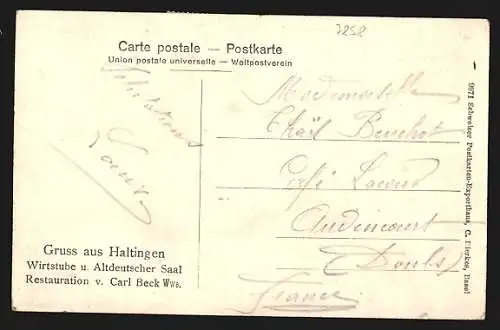 7258
Carte postale — Postkarte
Union postale universelle — Weltpostverein
Salutations
Louis
Mademoiselle
Bouchot
Café
Audincourt
(Doubs)
France
Gruss aus Haltingen
Wirtstube u. Altdeutscher Saal
Restauration v. Carl Beck Wwe.
Schweizer Postkarten-Exporthaus, C. Dierkes, Basel